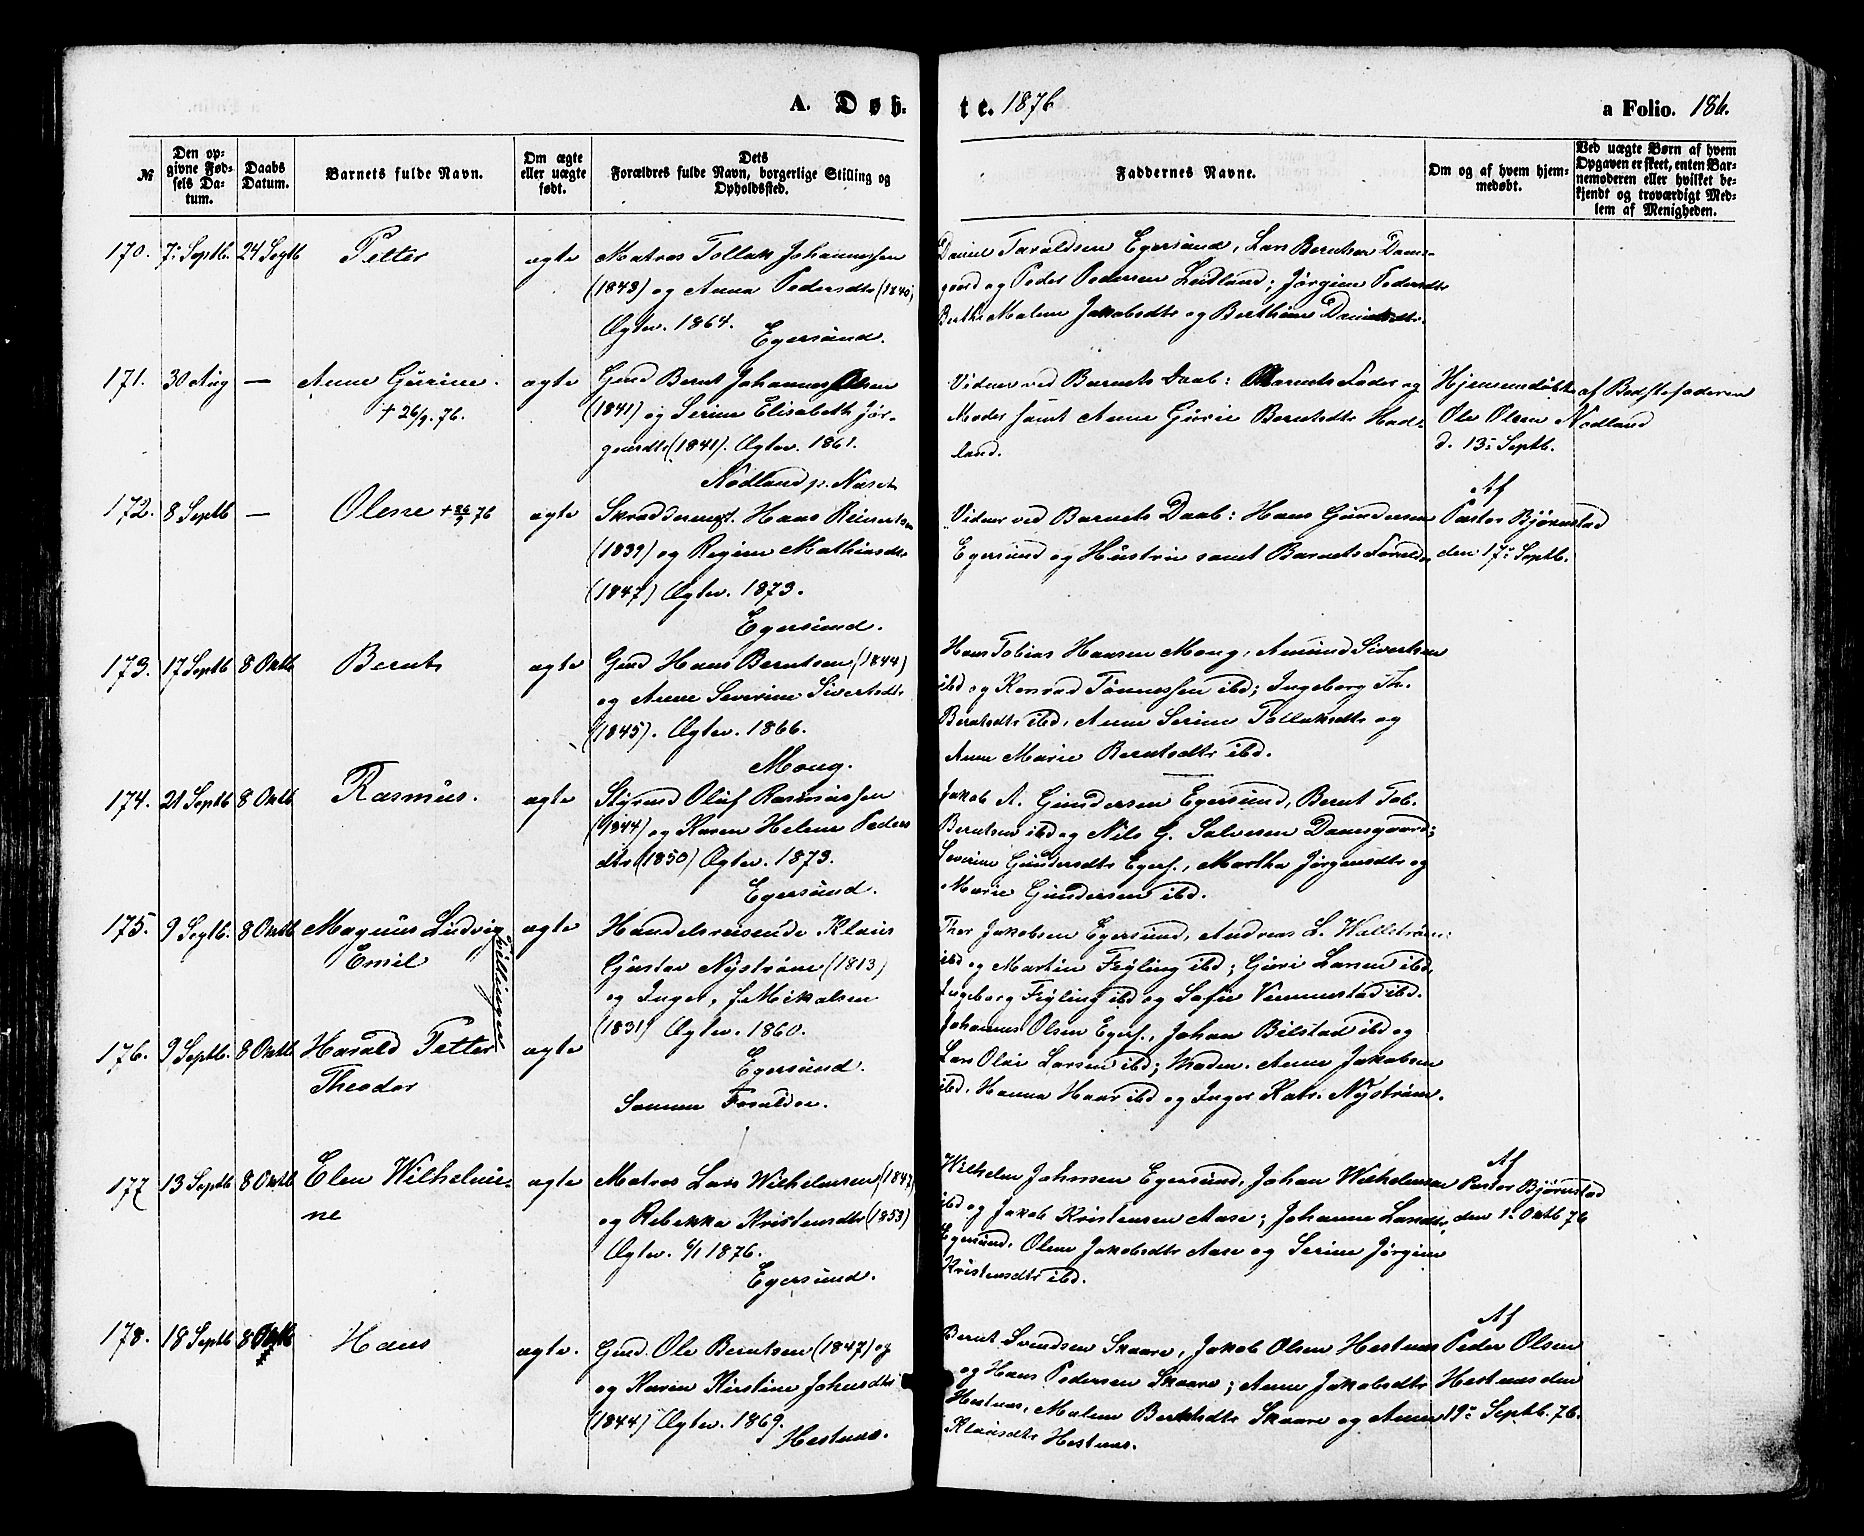 A. Døb-
te. 1876
a Folio. 186.
№
Den op-
givne Fød-
sels Da-
tum.
Daabs
Datum.
Barnets fulde Navn.
Om ægte
eller uægte
født.
Dets
Forældres fulde Navn, borgerlige Stilling og
Opholdssted.
Faddernes Navne.
Om og af hvem hjem-
medøbt.
Ved uægte Børn af hvem
Opgaven er skeet, enten Bar-
nemoderen eller hvilket be-
kjendt og troværdigt Med-
lem af Menigheden.
170. 7: Septb. 24 Septb Petter ægte
Matros Tollak Johannessen
(1843) og Anna Pedersdtr (1840)
Ægtev. 1864.
Egersund.
Daniel Taraldsen Egersund, Lars Berntsen Dams-
gaard og Peder Pedersen Leidland; Jørgine Pedersdtr
Berthe Malene Jakobsdtr og Berthine Danielsdtr.
171. 30 Aug — Anne Gurine. ægte
+ 26/9. 76.
Gmd Bernt Johannes Olsen
(1841) og Serine Elisabeth Jør-
gensdtr (1841). Ægtev. 1861.
Nødland p. Naset
Vidner ved Barnets Daab: Barnets Fader og
Moder samt Anne Gurie Berntsdtr Had-
land.
Hjemmedøbt af Bedstefaderen
Ole Olsen Nødland
d. 13: Septb.
172. 8 Septb — Olene + 26/9 76 ægte
Skræddermst. Hans Reinertsen
(1839) og Regine Mathiasdtr
(1847) Ægtev. 1873.
Egersund.
Vidner ved Barnets Daab: Hans Gundersen
Egersund og Hustru samt Barnets Forældre
Af
Pastor Bjørnstad
den 17: Septb.
173. 17 Septb 8 Oktb Bernt ægte
Gmd Hans Berntsen (1844)
og Anne Severine Sivertsdtr
(1845). Ægtev. 1866.
Mong.
Hans Tobias Hansen Mong, Amund Sivertsen
ibd og Konrad Tønnessen ibd; Ingeborg Th.
Berntsdtr ibd, Anne Serine Tollaksdtr og
Anne Marie Berntsdtr ibd.
174. 21 Septb 8 Oktb Rasmus. ægte
Styrmd Oluf Rasmussen
(1844) og Karen Helene Peders
dtr (1850) Ægtev. 1873.
Egersund.
Jakob A. Gundersen Egersund, Bernt Tob.
Berntsen ibd og Nils G. Salvesen Damsgaard;
Severine Gundersdtr Egers., Martha Jørgensdtr og
Marie Gundersen ibd.
175. 9 Septb. 8 Oktb Magnus Ludvig ægte
Emil
Tvillinger
Handelsreisende Klaus
Gustav Nystrøm (1813)
og Inger, f. Mikalsen
(1831) Ægtev. 1860.
Egersund.
Thor Jakobsen Egersund, Andreas L. Wallstrøm
ibd og Martin Feyling ibd; Guri Larsen ibd,
Ingeborg Feyling ibd og Sofie Vennestad ibd.
176. 9 Septb. 8 Oktb Harald Petter ægte
Theodor
Samme Forældre.
Johannes Olsen Egers., Johan Bilstad ibd og
Lars Olai Larsen ibd; Maden. Anne Jakobsen
ibd. Hanna Haar ibd og Inger Katr. Nystrøm.
177 13 Septb 8 Oktb Elen Wilhelmi- ægte
ne
Matros Lars Wilhelmsen (1847)
og Rebekka Kristensdtr (1853)
Ægtev. 6/1 1876.
Egersund.
Wilhelm Johnsen Egersund, Johan Wilhelmsen
ibd og Jakob Kristensen Aase; Johanne Larsdtr
Egersund. Olene Jakobsdtr Aase og Serine Jørgine
Kristensdtr ibd.
Af
Pastor Bjørnstad
den 1: Oktb 76
178. 18 Septb 8 Oktb Hans ægte.
Gmd. Ole Berntsen (1847) og
og Karen Kirstine Johnsdtr
(1844) Ægtev. 1869.
Hestnæs.
Bernt Svendsen Skaare, Jakob Olsen Hestnæs
og Hans Pedersen Skaare; Anne Jakobsdtr
Hestnæs, Malene Berntsdtr Skaare og Anne
Klausdtr Hestnæs.
Af
Peder Olsen
Hestnæs den
19: Septb. 76.